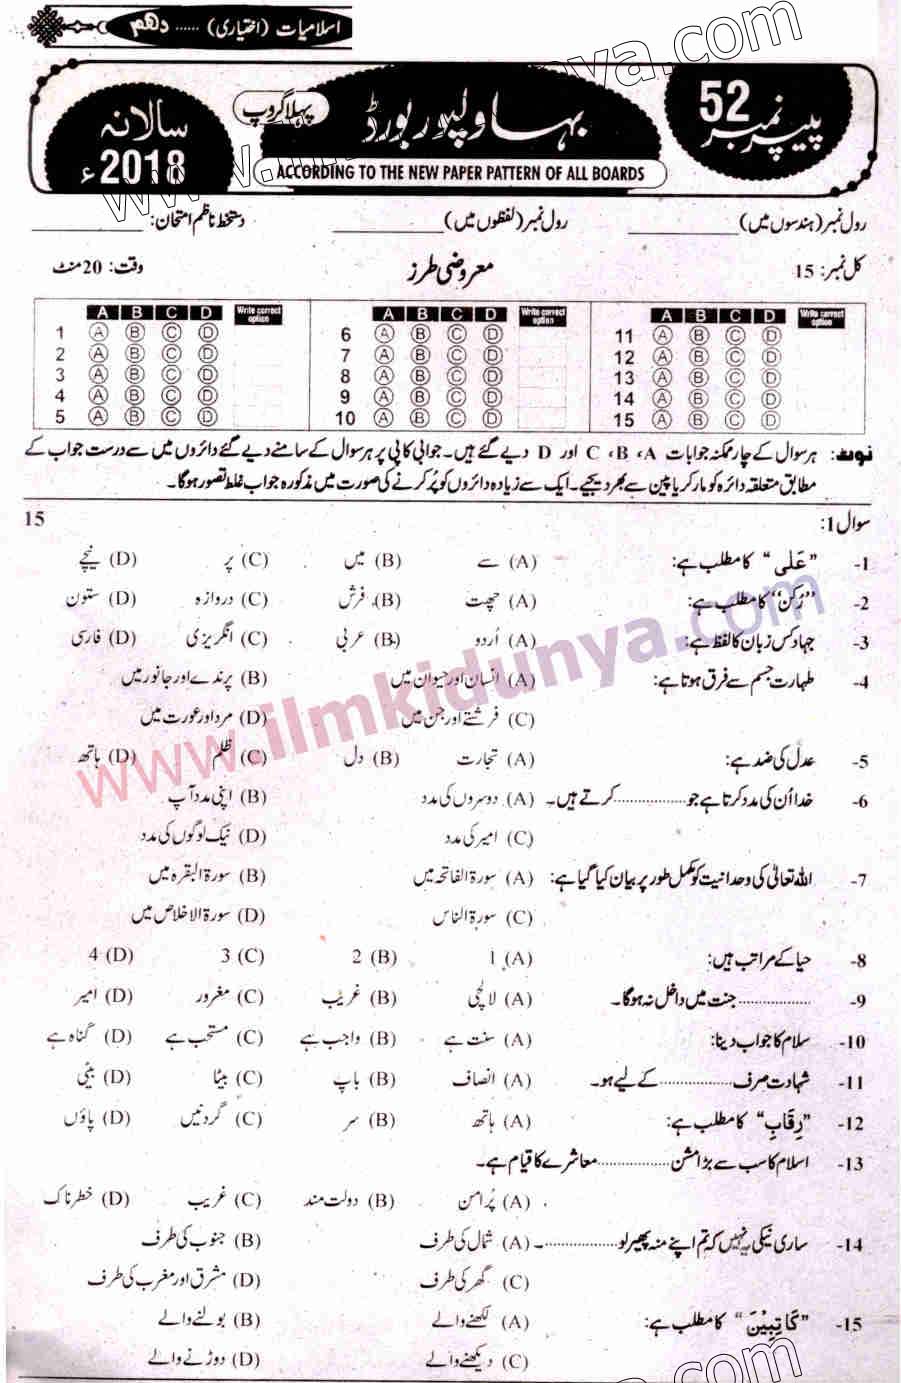 اسلامیات (اختیاری) ...... دہم
پیپر نمبر 52
بہاولپور بورڈ
پہلا گروپ
سالانہ 2018ء
ACCORDING TO THE NEW PAPER PATTERN OF ALL BOARDS
رول نمبر (ہندسوں میں) ــــــــــــ رول نمبر (لفظوں میں) ــــــــــــ دستخط ناظم امتحان: ــــــــــــ
کل نمبر: 15 معروضی طرز وقت: 20 منٹ
A B C D Write correct option A B C D Write correct option A B C D Write correct option
1 A B C D 6 A B C D 11 A B C D
2 A B C D 7 A B C D 12 A B C D
3 A B C D 8 A B C D 13 A B C D
4 A B C D 9 A B C D 14 A B C D
5 A B C D 10 A B C D 15 A B C D
نوٹ: ہر سوال کے چار ممکنہ جوابات A، B، C اور D دیے گئے ہیں۔ جوابی کاپی پر ہر سوال کے سامنے دیے گئے دائروں میں سے درست جواب کے
مطابق متعلقہ دائرہ کو مارکر یا پین سے بھر دیجیے۔ ایک سے زیادہ دائروں کو پُر کرنے کی صورت میں مذکورہ جواب غلط تصور ہوگا۔
سوال 1: 15
1- "عَلٰی" کا مطلب ہے: (A) سے (B) میں (C) پر (D) نیچے
2- "رُکن" کا مطلب ہے: (A) چھت (B) فرش (C) دروازہ (D) ستون
3- جہاد کس زبان کا لفظ ہے: (A) اُردو (B) عربی (C) انگریزی (D) فارسی
4- طہارت جسم سے فرق ہوتا ہے: (A) انسان اور حیوان میں (B) پرندے اور جانور میں
(C) فرشتے اور جن میں (D) مرد اور عورت میں
5- عدل کی ضد ہے: (A) تجارت (B) دل (C) ظلم (D) ہاتھ
6- خدا اُن کی مدد کرتا ہے جو .................. کرتے ہیں۔ (A) دوسروں کی مدد (B) اپنی مدد آپ
(C) امیر کی مدد (D) نیک لوگوں کی مدد
7- اللہ تعالیٰ کی وحدانیت کو مکمل طور پر بیان کیا گیا ہے: (A) سورۃ الفاتحہ میں (B) سورۃ البقرہ میں
(C) سورۃ الناس (D) سورۃ الاخلاص میں
8- حیا کے مراتب ہیں: (A) 1 (B) 2 (C) 3 (D) 4
9- .................. جنت میں داخل نہ ہوگا۔ (A) لالچی (B) غریب (C) مغرور (D) امیر
10- سلام کا جواب دینا: (A) سنت ہے (B) واجب ہے (C) مستحب ہے (D) گناہ ہے
11- شہادت صرف .................. کے لیے ہو۔ (A) انصاف (B) باپ (C) بیٹا (D) بیٹی
12- "رِقَابِ" کا مطلب ہے: (A) ہاتھ (B) سر (C) گردنیں (D) پاؤں
13- اسلام کا سب سے بڑا مشن .................. معاشرے کا قیام ہے۔
(A) پُرامن (B) دولت مند (C) غریب (D) خطرناک
14- ساری نیکی یہ نہیں کہ تم اپنے منہ پھیر لو ..................۔ (A) شمال کی طرف (B) جنوب کی طرف
(C) گھر کی طرف (D) مشرق اور مغرب کی طرف
15- "کَاتِبِیْنَ" کا مطلب ہے: (A) لکھنے والے (B) بولنے والے
(C) دیکھنے والے (D) دوڑنے والے
www.ilmkidunya.com